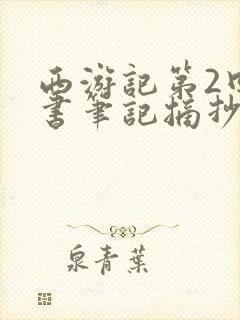 西游記第2
書筆記摘抄
泉青葉